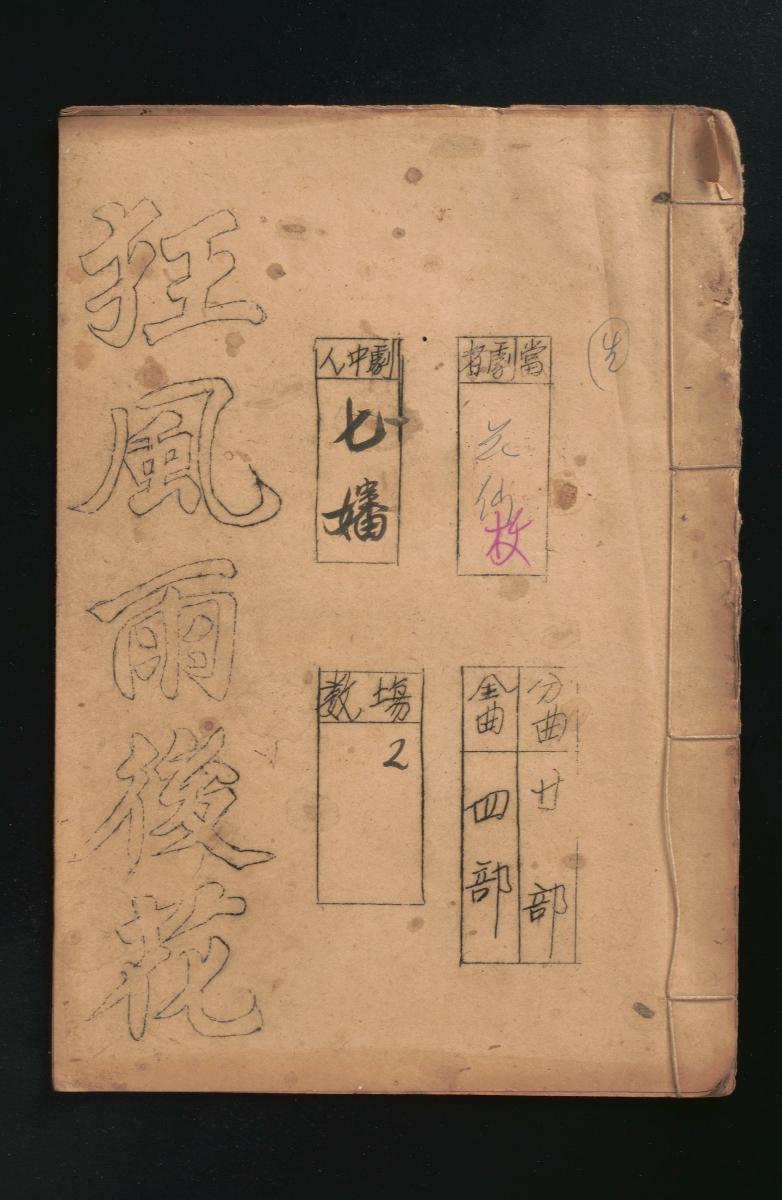 狂風雨後花
先
當劇者
花仙
枝
劇中人
七嬸
分曲
廿部
全曲
四部
場數
2